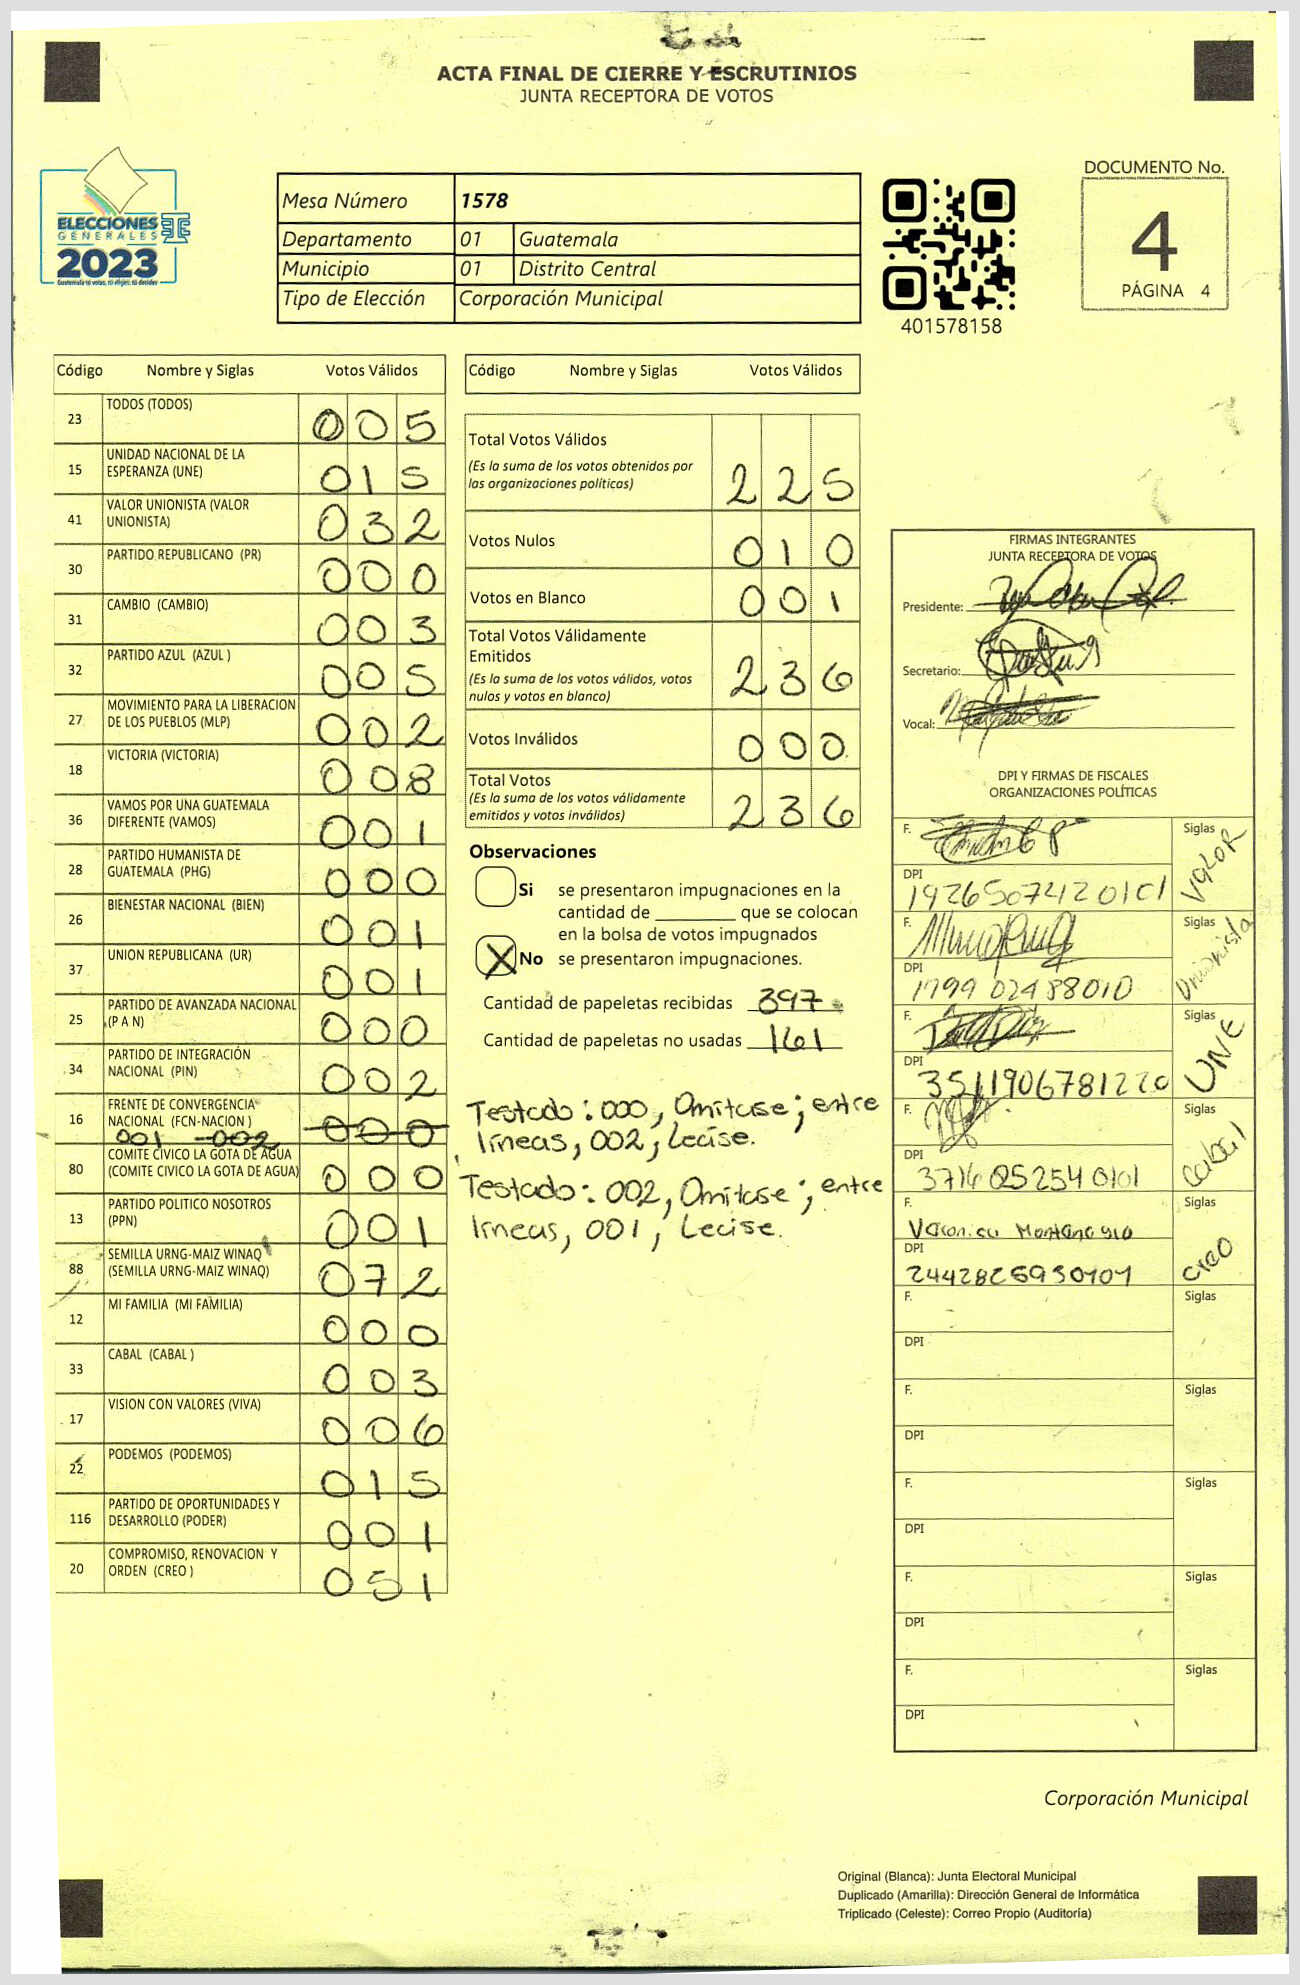 ACTA FINAL DE CIERRE Y ESCRUTINIOS
JUNTA RECEPTORA DE VOTOS
ELECCIONES
GENERALES
2023
Guatemala tú votas, tú eliges, tú decides
Mesa Número 1578
Departamento 01 Guatemala
Municipio 01 Distrito Central
Tipo de Elección Corporación Municipal
401578158
DOCUMENTO No.
4
PÁGINA 4
Código Nombre y Siglas Votos Válidos
23 TODOS (TODOS) 005
15 UNIDAD NACIONAL DE LA ESPERANZA (UNE) 015
41 VALOR UNIONISTA (VALOR UNIONISTA) 032
30 PARTIDO REPUBLICANO (PR) 000
31 CAMBIO (CAMBIO) 003
32 PARTIDO AZUL (AZUL ) 005
27 MOVIMIENTO PARA LA LIBERACION DE LOS PUEBLOS (MLP) 002
18 VICTORIA (VICTORIA) 008
36 VAMOS POR UNA GUATEMALA DIFERENTE (VAMOS) 001
28 PARTIDO HUMANISTA DE GUATEMALA (PHG) 000
26 BIENESTAR NACIONAL (BIEN) 001
37 UNION REPUBLICANA (UR) 001
25 PARTIDO DE AVANZADA NACIONAL (P A N) 000
34 PARTIDO DE INTEGRACIÓN NACIONAL (PIN) 002
16 FRENTE DE CONVERGENCIA NACIONAL (FCN-NACION ) 000
001 002
80 COMITE CIVICO LA GOTA DE AGUA (COMITE CIVICO LA GOTA DE AGUA) 000
13 PARTIDO POLITICO NOSOTROS (PPN) 001
88 SEMILLA URNG-MAIZ WINAQ (SEMILLA URNG-MAIZ WINAQ) 072
12 MI FAMILIA (MI FAMILIA) 000
33 CABAL (CABAL ) 003
17 VISION CON VALORES (VIVA) 006
22 PODEMOS (PODEMOS) 015
116 PARTIDO DE OPORTUNIDADES Y DESARROLLO (PODER) 001
20 COMPROMISO, RENOVACION Y ORDEN (CREO ) 051
Código Nombre y Siglas Votos Válidos
Total Votos Válidos 225
(Es la suma de los votos obtenidos por
las organizaciones políticas)
Votos Nulos 010
Votos en Blanco 001
Total Votos Válidamente
Emitidos 236
(Es la suma de los votos válidos, votos
nulos y votos en blanco)
Votos Inválidos 000
Total Votos 236
(Es la suma de los votos válidamente
emitidos y votos inválidos)
Observaciones
Si se presentaron impugnaciones en la
cantidad de ________ que se colocan
en la bolsa de votos impugnados
X No se presentaron impugnaciones.
Cantidad de papeletas recibidas 397
Cantidad de papeletas no usadas 161
Testado: 000, Omitase; entre
líneas, 002, Lease.
Testado: 002, Omitase; entre
líneas, 001, Lecise.
FIRMAS INTEGRANTES
JUNTA RECEPTORA DE VOTOS
Presidente:
Secretario:
Vocal:
DPI Y FIRMAS DE FISCALES
ORGANIZACIONES POLÍTICAS
F. Siglas VALOR
DPI 1926507412 0101
F. Siglas Unionista
DPI 1799 02488010
F. Siglas UNE
DPI 3511906781220
F. Siglas Cabal
DPI 3716 025254 0101
F. Veronica Siglas CREO
DPI 2442826930101
F. Siglas
DPI
F. Siglas
DPI
F. Siglas
DPI
F. Siglas
DPI
F. Siglas
DPI
Corporación Municipal
Original (Blanca): Junta Electoral Municipal
Duplicado (Amarilla): Dirección General de Informática
Triplicado (Celeste): Correo Propio (Auditoría)